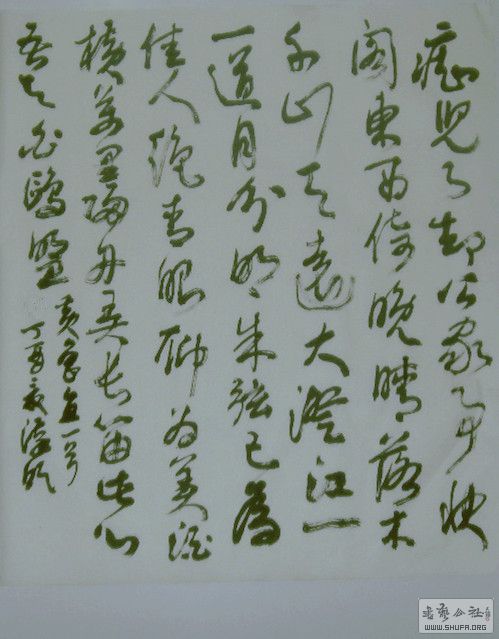 痴兒了却公家事快
阁東西倚晚晴落木
千山天遠大澄江一
一道月分明朱弦已為
佳人絶青眼聊為美酒
横萬里歸舟弄長笛此心
吾与白鷗盟
黄庭堅一首
丁酉夏
書艺公社
WWW.SHUFA.ORG